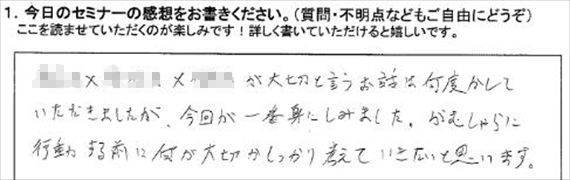 1. 今日のセミナーの感想をお書きください。(質問・不明点などもご自由にどうぞ)
ここを読ませていただくのが楽しみです！詳しく書いていただけると嬉しいです。
× × が大切と言うお話は何度かして
いただきましたが、今回が一番身にしみました。がむしゃらに
行動する前に何が大切かしっかり考えていきたいと思います。